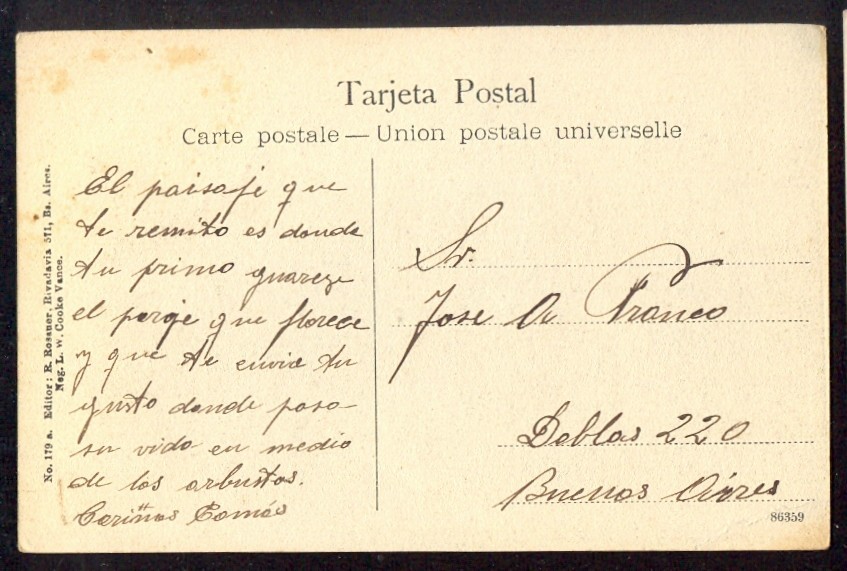 Tarjeta Postal
Carte postale — Union postale universelle
No. 179 a. Editor: R. Rosauer, Rivadavia 571, Bs. Aires.
Neg. L. W. Cooke Vance.
El paisaje que
te remito es donde
tu primo guareze
el perge que florece
y que te envia tu
gusto donde paso
su vida en medio
de los arbustos.
Cariños Tomás
Sr.
Jose A Franco
Deblas 220
Buenos Aires
86359